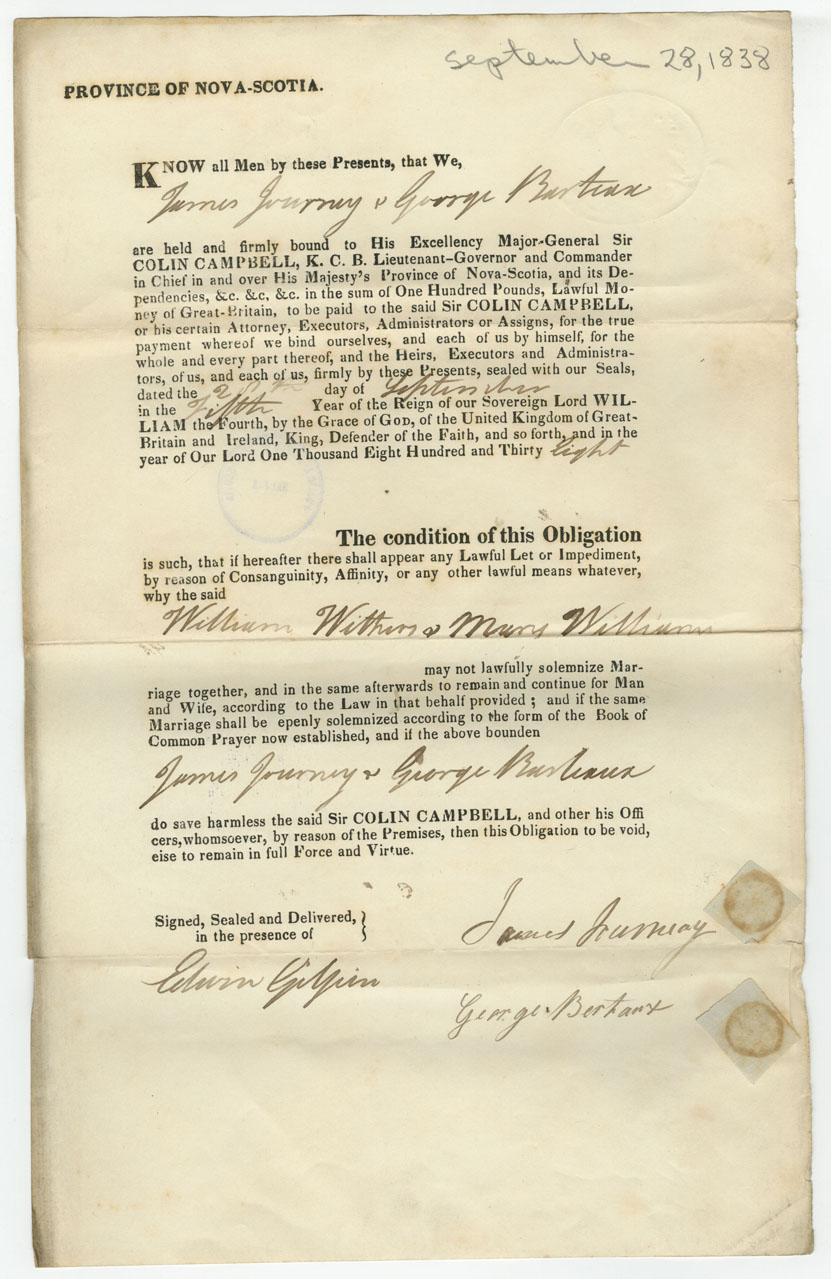 September 28, 1838
PROVINCE OF NOVA-SCOTIA.
KNOW all Men by these Presents, that We,
James Journey & George Barteaux
are held and firmly bound to His Excellency Major-General Sir
COLIN CAMPBELL, K. C. B. Lieutenant-Governor and Commander
in Chief in and over His Majesty's Province of Nova-Scotia, and its De-
pendencies, &c. &c, &c. in the sum of One Hundred Pounds, Lawful Mo-
ney of Great-Britain, to be paid to the said Sir COLIN CAMPBELL,
or his certain Attorney, Executors, Administrators or Assigns, for the true
payment whereof we bind ourselves, and each of us by himself, for the
whole and every part thereof, and the Heirs, Executors and Administra-
tors, of us, and each of us, firmly by these Presents, sealed with our Seals,
dated the day of September
in the Fifth Year of the Reign of our Sovereign Lord WIL-
LIAM the Fourth, by the Grace of GOD, of the United Kingdom of Great-
Britain and Ireland, King, Defender of the Faith, and so forth, and in the
year of Our Lord One Thousand Eight Hundred and Thirty Eight
The condition of this Obligation
is such, that if hereafter there shall appear any Lawful Let or Impediment,
by reason of Consanguinity, Affinity, or any other lawful means whatever,
why the said
William Withers & Mary Williams
may not lawfully solemnize Mar-
riage together, and in the same afterwards to remain and continue for Man
and Wife, according to the Law in that behalf provided ; and if the same
Marriage shall be epenly solemnized according to the form of the Book of
Common Prayer now established, and if the above bounden
James Journey & George Barteaux
do save harmless the said Sir COLIN CAMPBELL, and other his Offi
cers, whomsoever, by reason of the Premises, then this Obligation to be void,
eise to remain in full Force and Virtue.
Signed, Sealed and Delivered,
in the presence of
James Journeay
Edwin Gilpin
George Bertaux